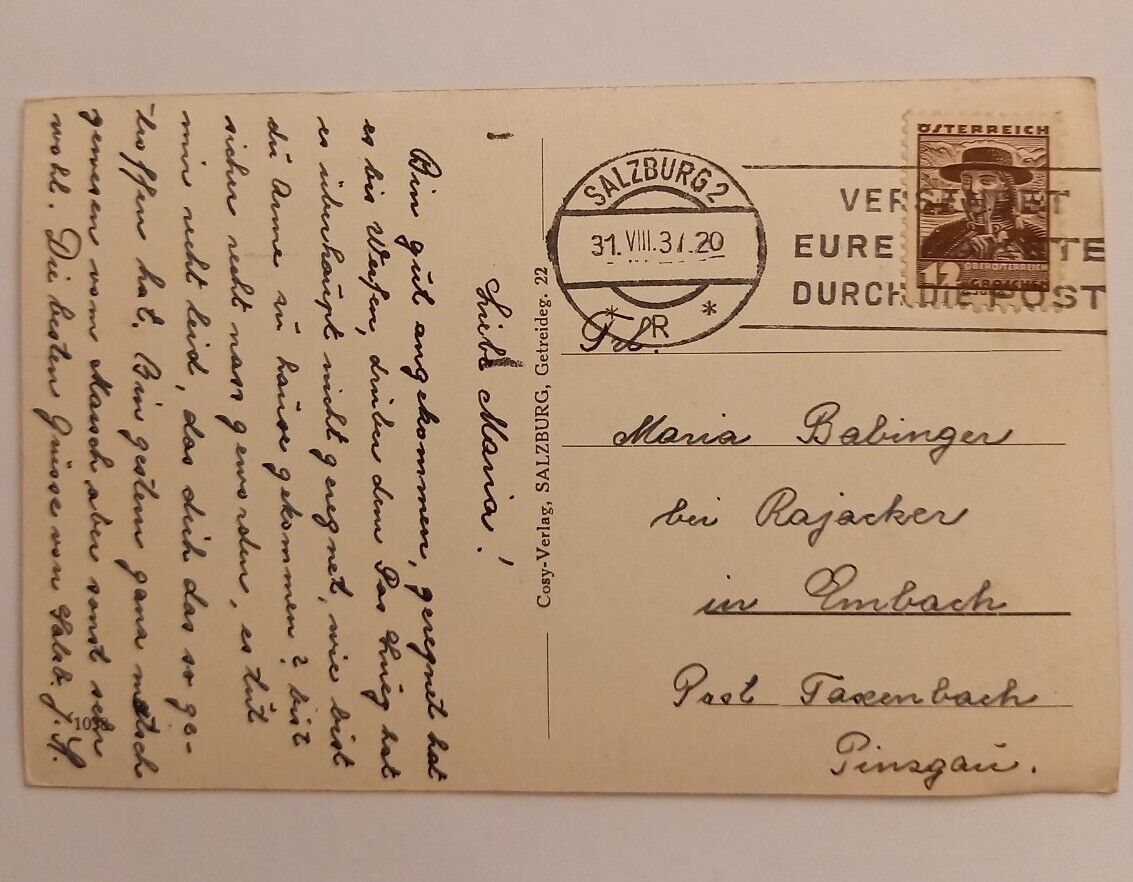 Liebe Maria!
Bin gut angekommen, geregnet hat
es bis Werfen, drüber dem Pas Lueg hat
es überhaupt nicht geregnet, wie bist
du Arme zu hause gekommen? bist
sicher recht nass geworden, es tut
mir recht leid, das dich das so ge-
troffen hat. Bin gestern ganz
gewesen vom Marsch aber sonst sehr
wohl. Die besten Grüsse von Salzb.
Cosy-Verlag, SALZBURG, Getreideg. 22
SALZBURG 2
31. VIII. 37. 20
* R *
ÖSTERREICH
12
OBERÖSTERREICH
GROSCHEN
EURE
DURCH DIE POST
Frl.
Maria Babinger
bei Rajacker
in Embach
Post Taxenbach
Pinzgau.